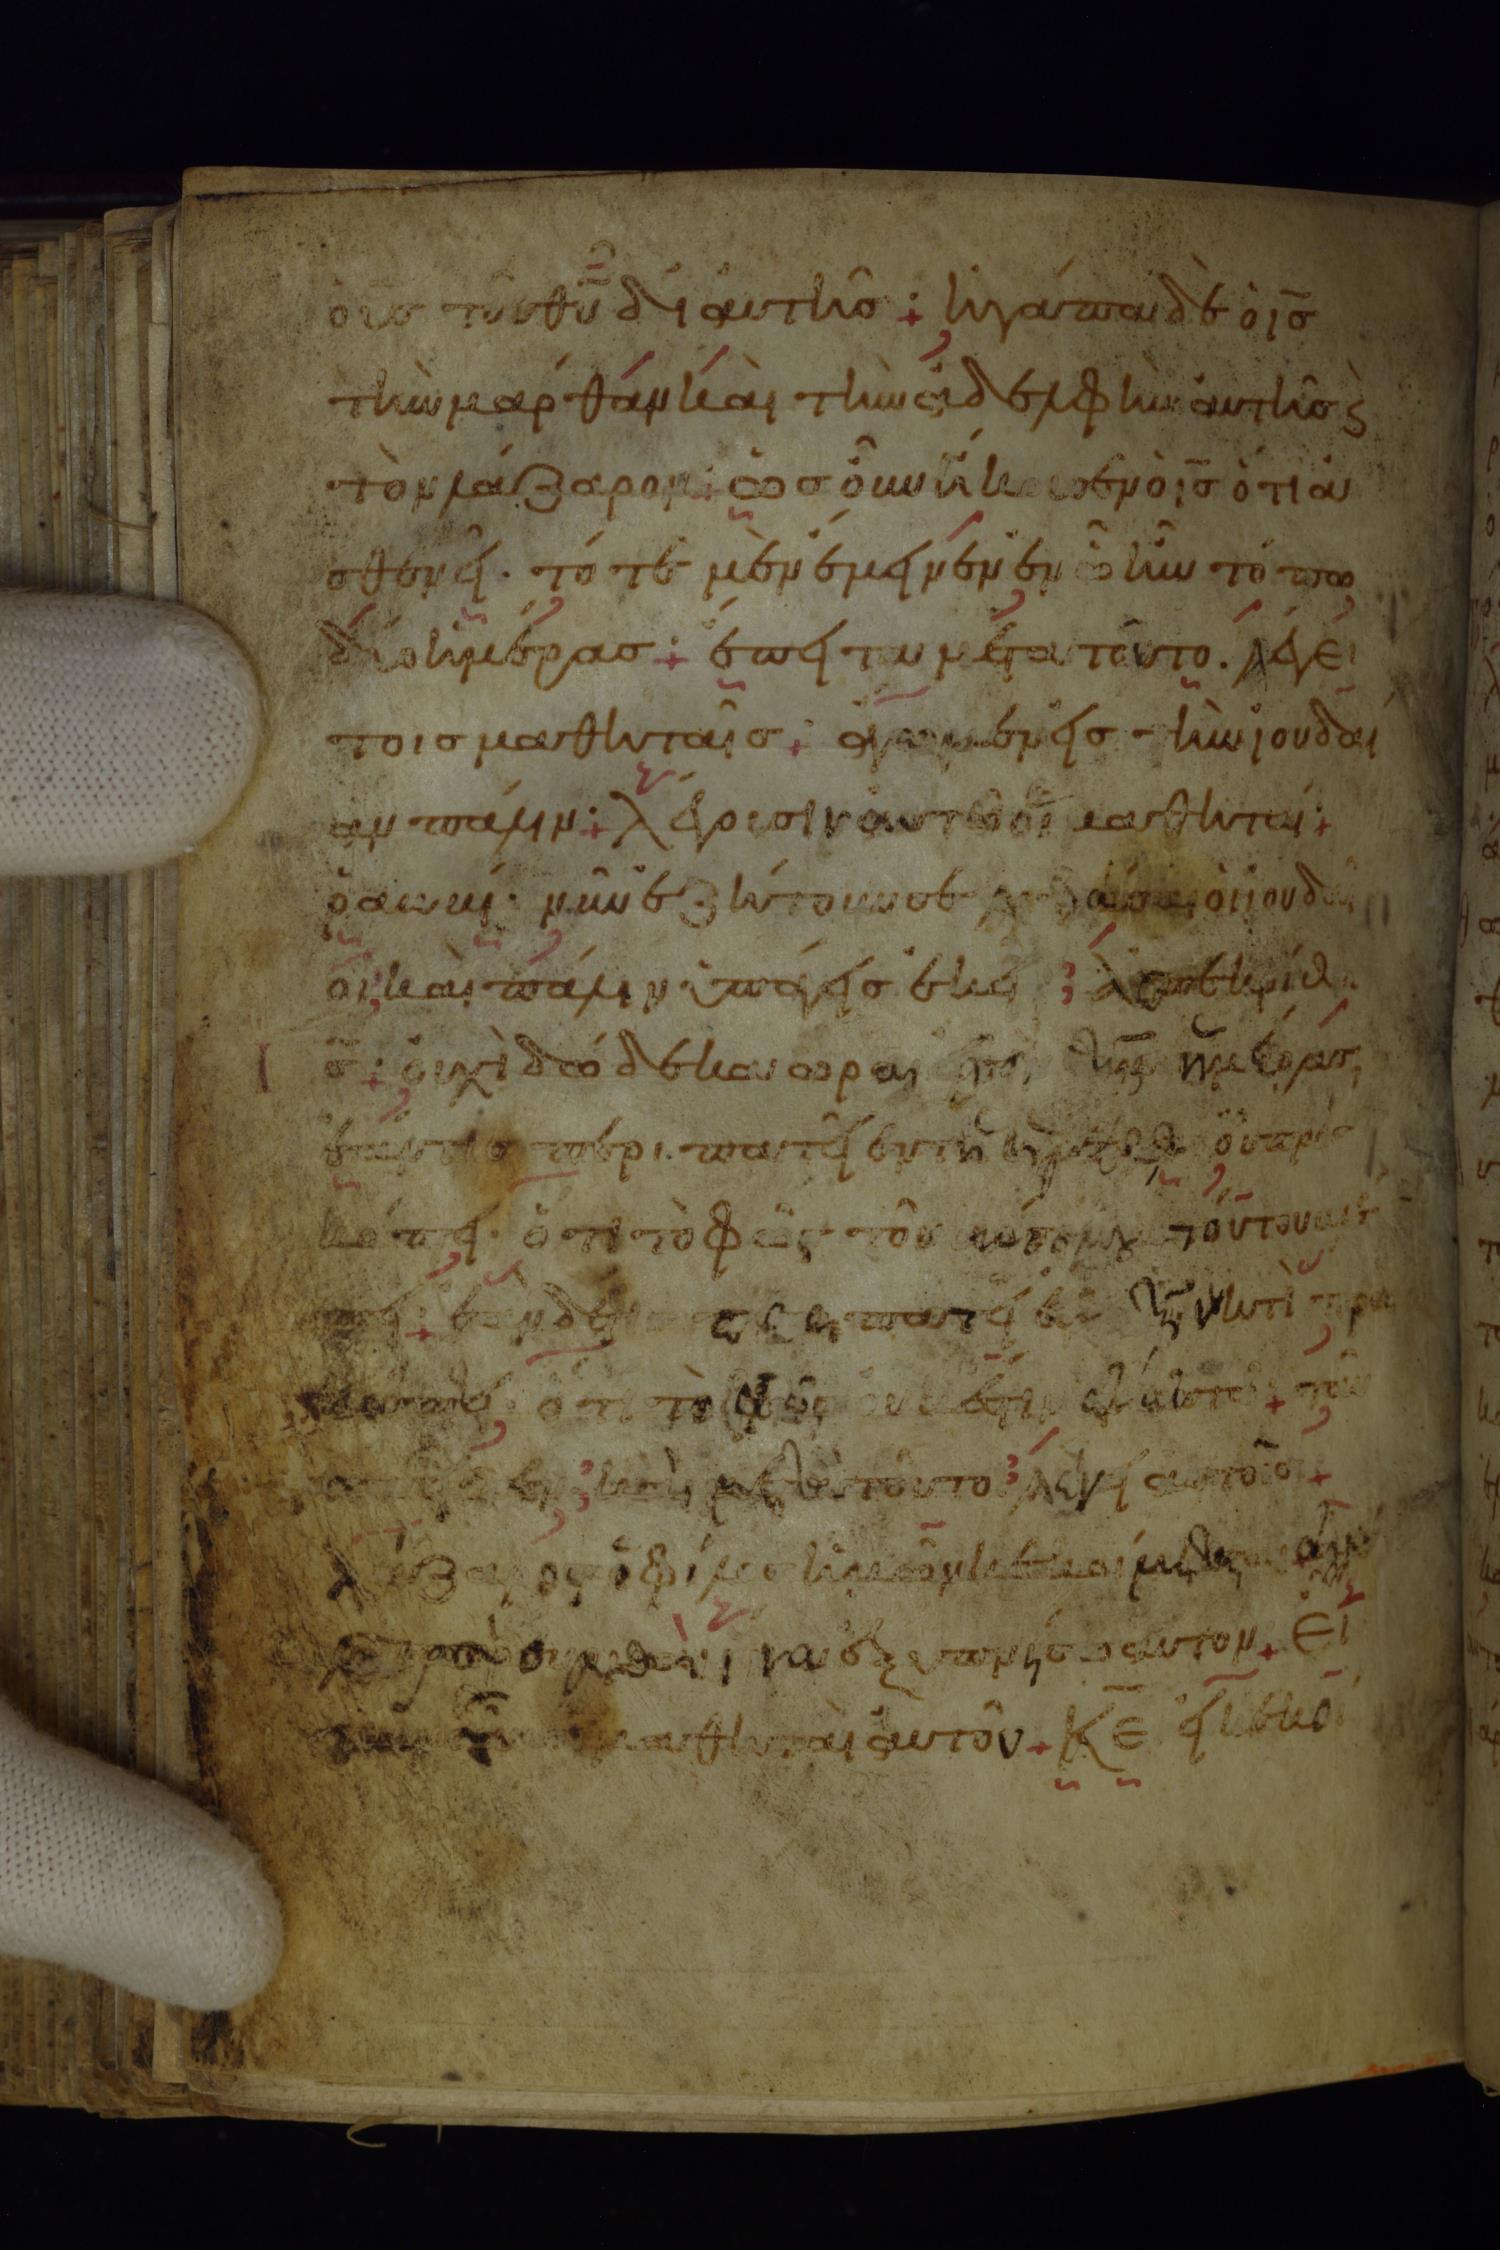 ὁ υ̅σ τοῦ θυ̅ δι αυτῆσ + ἠγάπα δὲ ὁ ι̅σ
τὴν μάρθαν καὶ τὴν ἀδελφὴν αυτῆσ ϛ
τὸν λάζαρον + ὡσ οὖν ἤκουσεν ὁ ι̅σ ὅτι ἀ
σθενεῖ · τότε μὲν ἔμεινεν ἐν ᾧ ἦν τόπω
δύο ἡμέρασ + ἔπειτα μετα τοῦτο · λέγει
τοισ μαθηταῖσ + ἄγωμεν εἰσ τὴν ἰουδαί
αν πάλιν + λέγουσιν αυτῶ οἱ μαθηταί +
ῥαββί · νῦν ἐζήτουν σε λιθάσαι οἱ ἰουδαῖ
οι, καὶ πάλιν ὑπάγεισ ἐκεῖ ; ἀπεκρίθη
ι̅σ + οὐχὶ δώδεκα ὧραι τῆσ ἡμέρασ
ἐάν τισ περιπατεῖ ἐν τῇ ἡμέρᾳ οὐ προσ
κόπτει · ὅτι τὸ φῶς τοῦ κόσμου τούτου βλέ
πει + ἐὰν δέ τις περιπατεῖ ἐν τῇ νυκτὶ προσ
κόπτει · ὅτι τὸ φῶς οὐκ ἔστιν ἐν αὐτῶ + ταῦ
τα εἶπεν, καὶ μετὰ τοῦτο λέγει αυτοῖσ +
λάζαρος ὁ φίλοσ ἡμῶν κεκοίμηται ἀλλὰ
πορεύομαι ἵνα ἐξυπνήσω αυτον + εἶ
πον οὖν οἱ μαθηταὶ αὐτοῦ + κ̅ε εἰ κεκοί